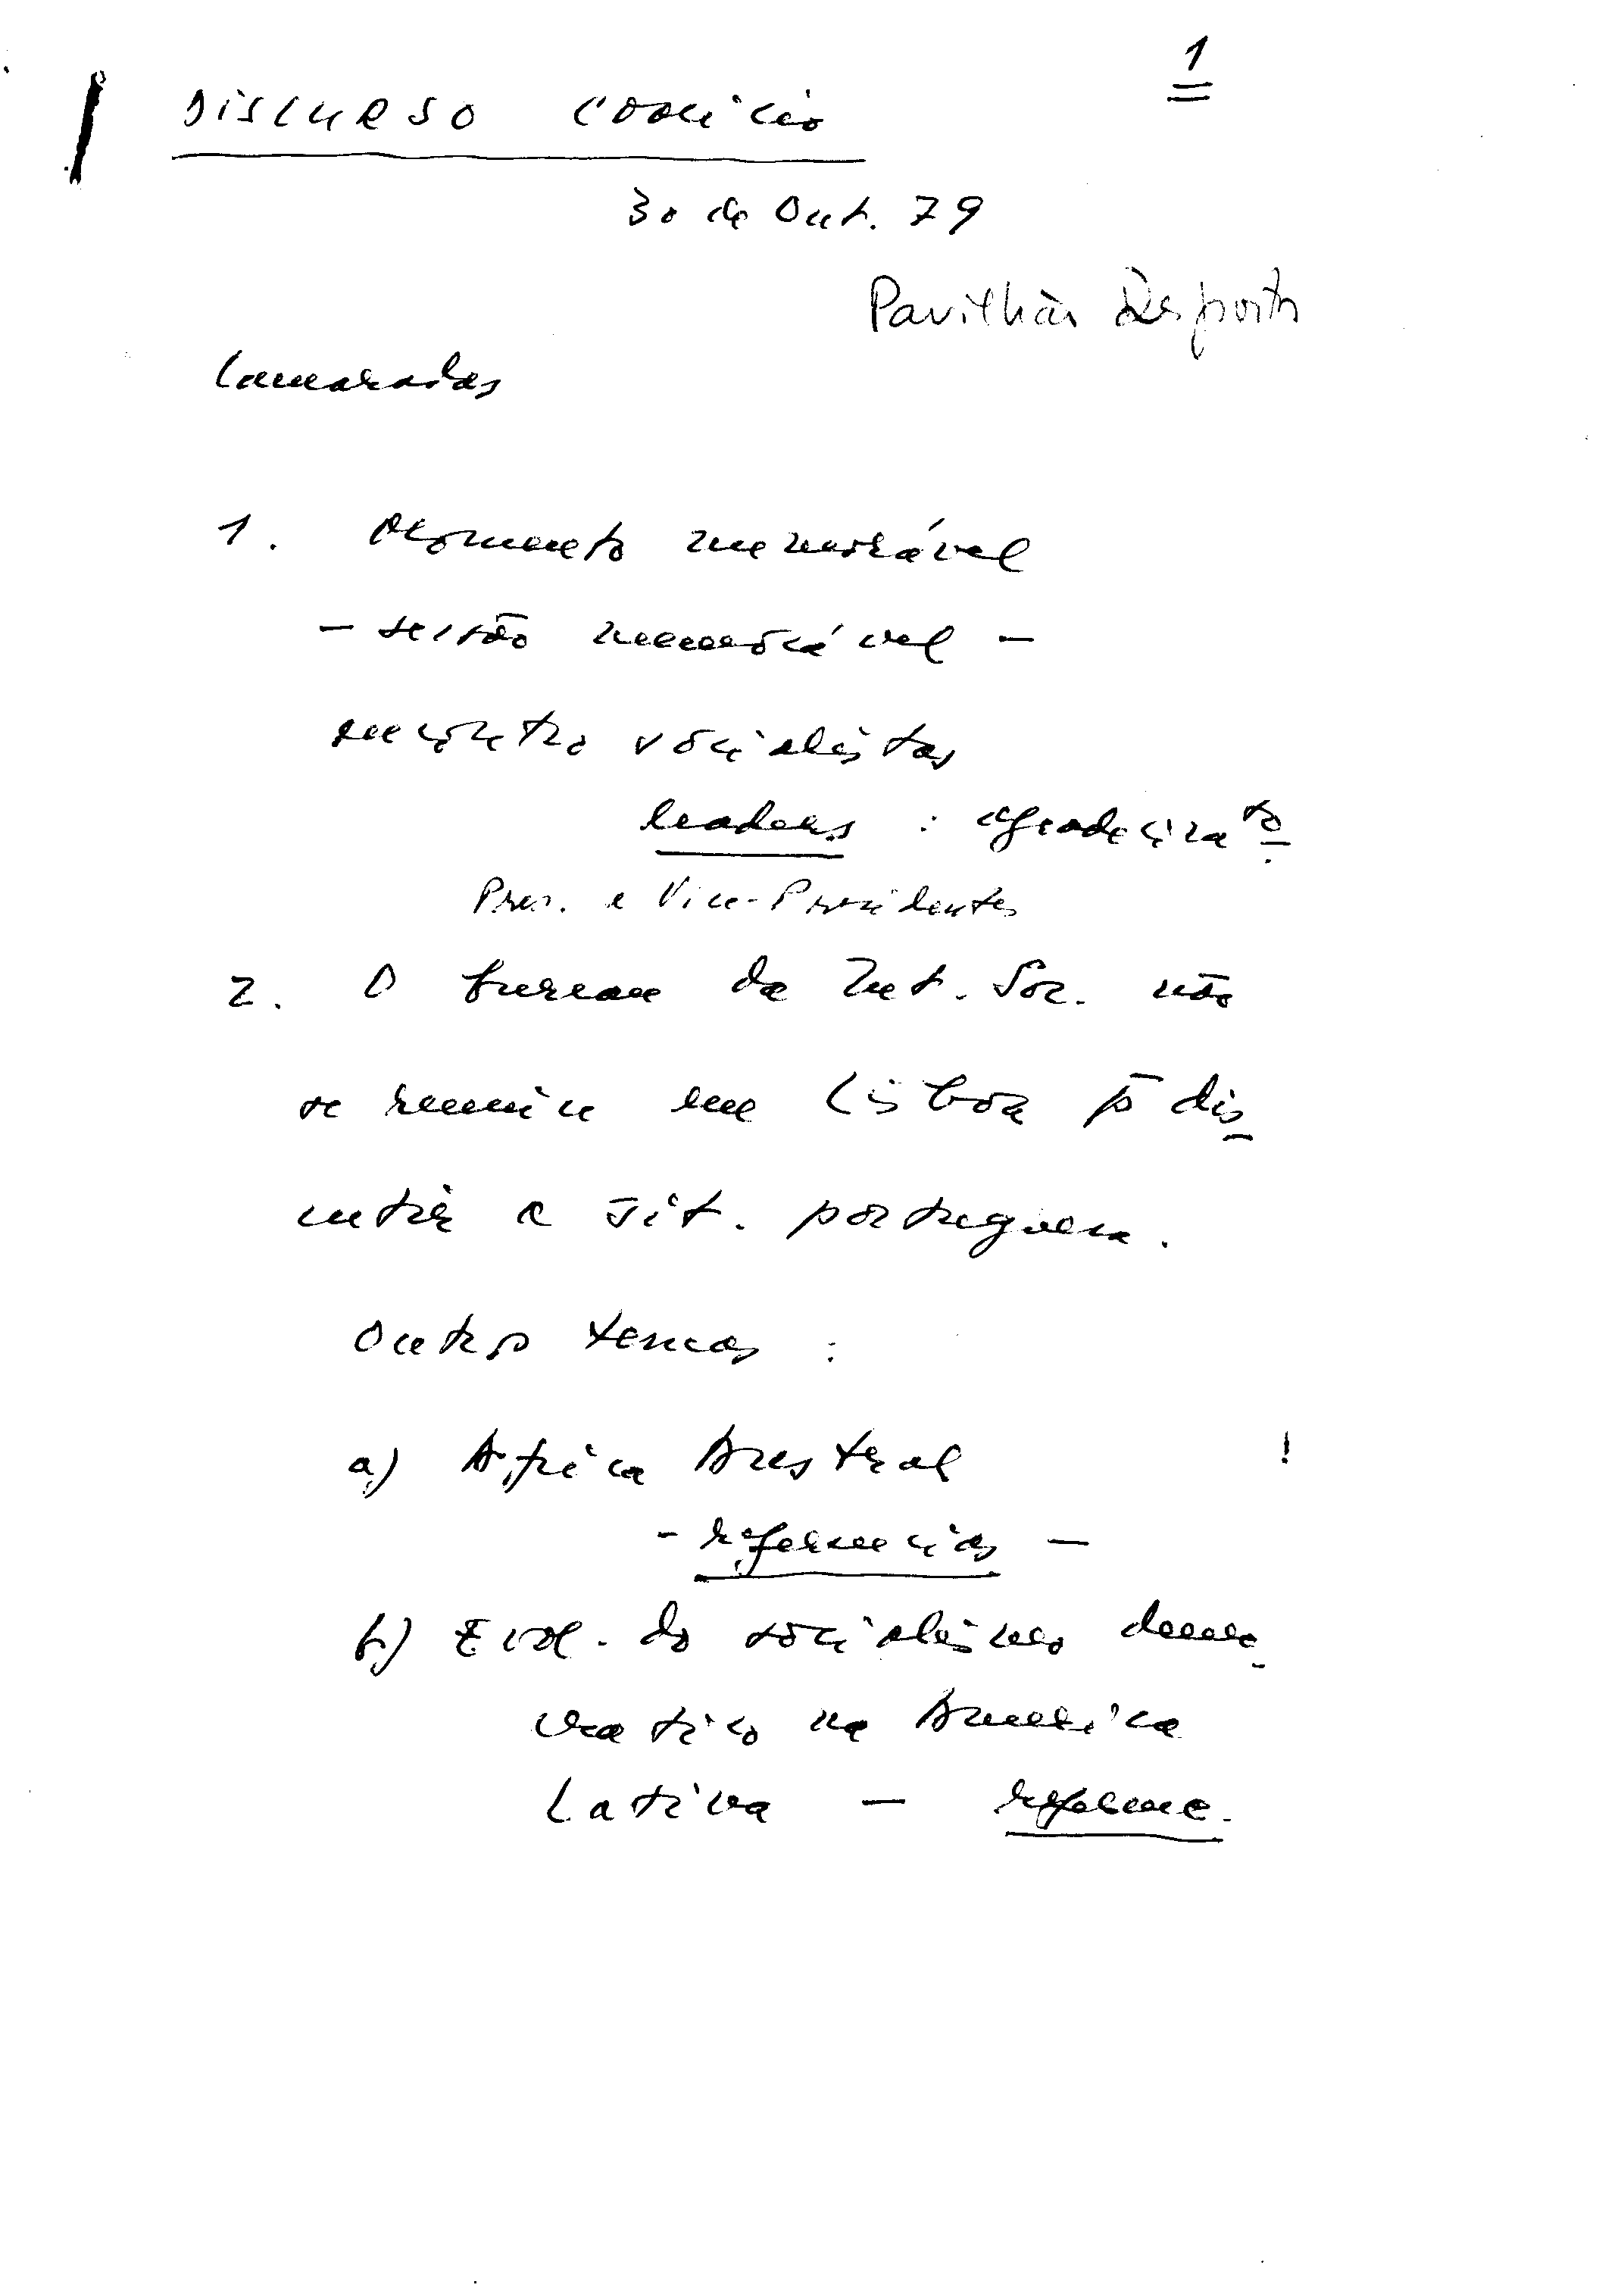 1
DISCURSO COMÍCIO
30 de Out. 79
Pavilhão Desportos
Camaradas
1. Momento memorável
- sessão memorável -
encontro socialistas
leaders : agradecim.to
Pres. e Vice-Presidentes
2. O bureau da Int. Soc. não
se reuniu em Lisboa p.ª dis-
cutir a sit. portuguesa.
Outros temas :
a) África Austral
- referências -
b) Evol. do socialismo demo-
crático na América
Latina - referênc.